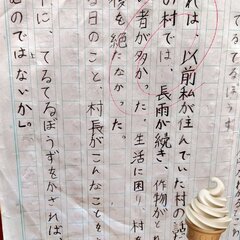 れは、以前私が住んでいた村の
の村では、長雨が続き、作物がと
者が多かった。生活に困り村を
後を絶たなかった。
る日のこと、村長がこんなことを
下に、てるてるぼうずをかざれば、
むのではないか」。